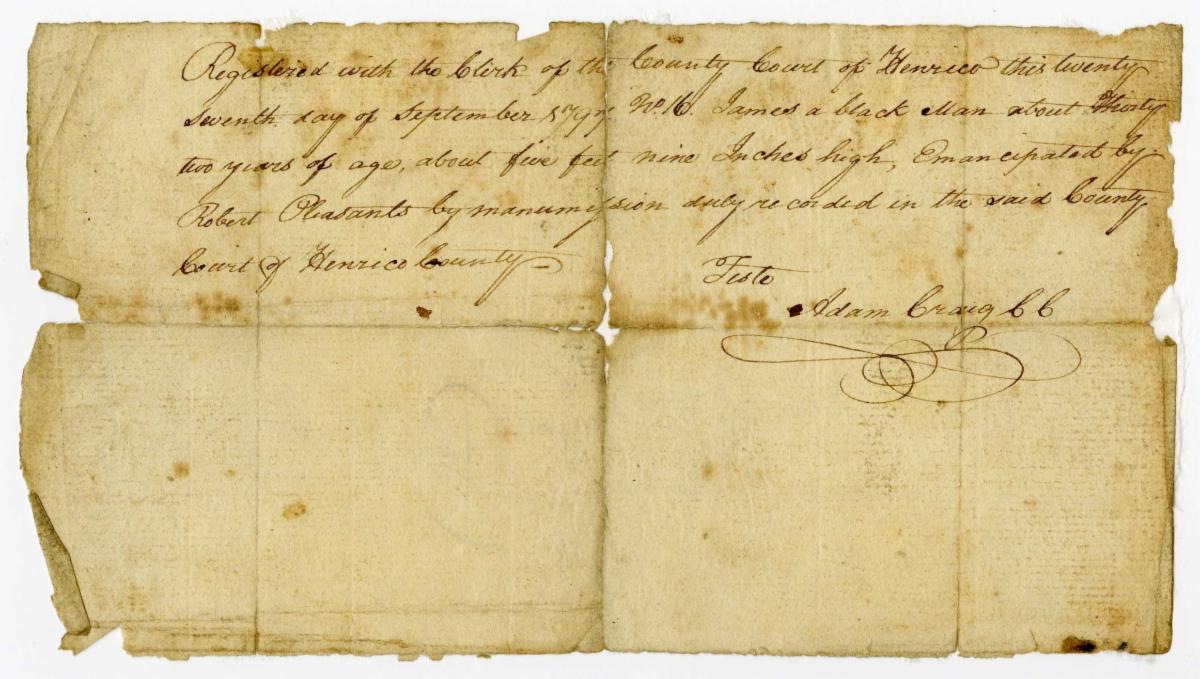 Registered with the Clerk of the County Court of Henrico this twenty
seventh day of September 179 No. 16. James a black Man about Thirty
two years of age, about five feet nine Inches high, Emancipated by
Robert Pleasants by manumission duly recorded in the said County
Court of Henrico County
Teste
Adam Craig CC